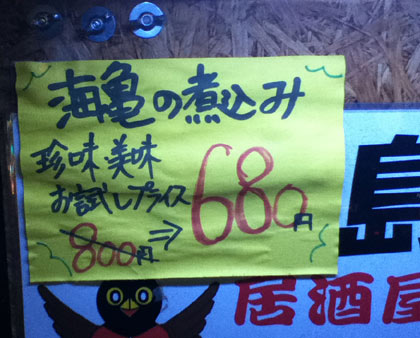 海亀の煮込み
珍味・美味
お試しプライス
800円 ⇒ 680円
島
居酒屋